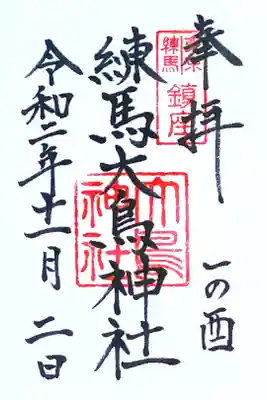 奉拝
練馬
鎮座
一の酉
練馬大鳥神社
大鳥
神社
令和二年十一月二日